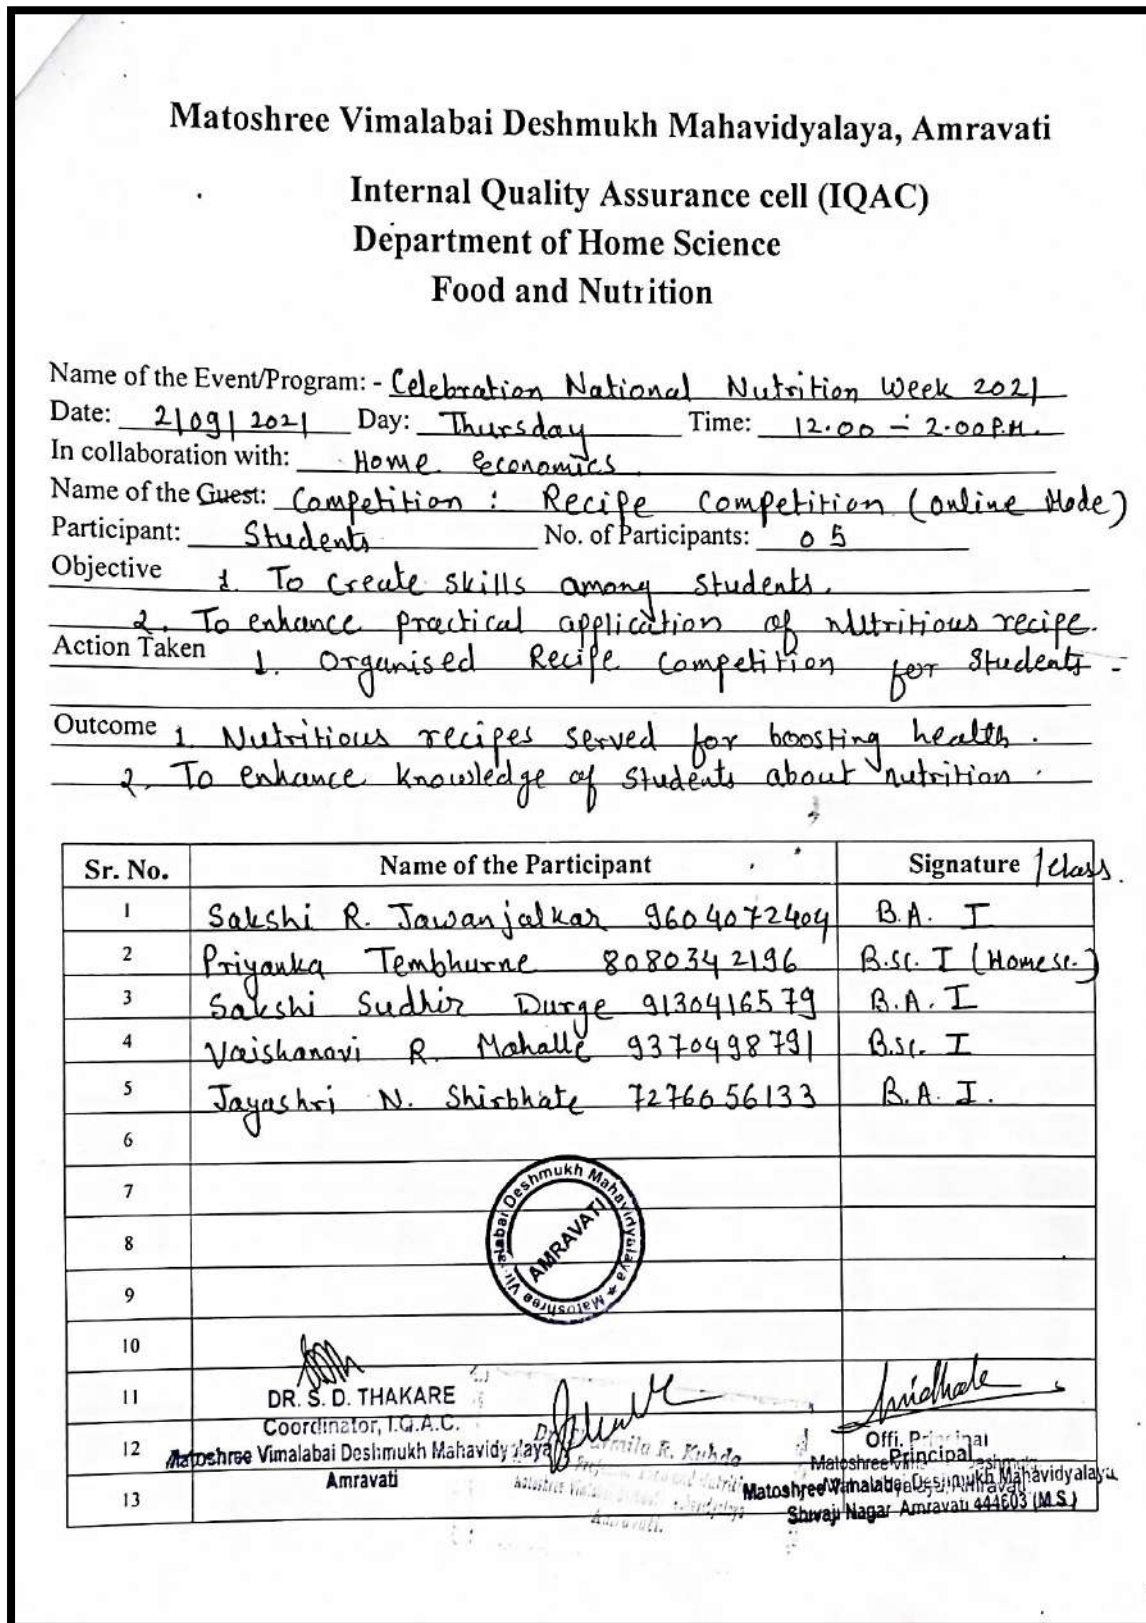 Matoshree Vimalabai Deshmukh Mahavidyalaya, Amravati
Internal Quality Assurance cell (IQAC)
Department of Home Science
Food and Nutrition
Name of the Event/Program: - Celebration National Nutrition Week 2021
Date: 2|09|2021 Day: Thursday Time: 12.00 - 2.00 P.M.
In collaboration with: Home Economics
Name of the Guest: Competition : Recipe Competition (online Mode)
Participant: Students No. of Participants: 05
Objective 1. To create skills among students.
2. To enhance practical application of nutritious recipe.
Action Taken 1. Organised Recipe Competition for Students -
Outcome 1. Nutritious recipes served for boosting health.
2. To enhance knowledge of students about nutrition.
Sr. No. Name of the Participant Signature /class.
1 Sakshi R. Jawanjalkar 9604072404 B.A. I
2 Priyanka Tembhurne 8080342196 B.Sc. I (Homesc.)
3 Sakshi Sudhir Durge 9130416579 B.A. I
4 Vaishanavi R. Mahalle 9370498791 B.Sc. I
5 Jayashri N. Shirbhate 7276656133 B.A. I.
6
7
8
9
Matoshree Vimalabai Deshmukh Mahavidyalaya
AMRAVATI
10
11 DR. S. D. THAKARE
Coordinator, I.Q.A.C. Offi. Principal
12 Matoshree Vimalabai Deshmukh Mahavidyalaya R. Kuhde Principal
Amravati Matoshree Vimalabai Deshmukh Mahavidyalaya
13 Shivaji Nagar Amravati 444603 (M.S.)
Amravati.